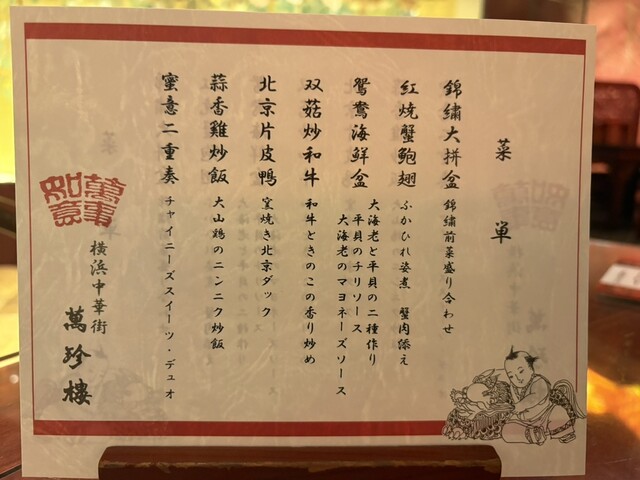 菜単
錦繡大拼盆 錦繡前菜盛り合わせ
紅焼蟹鮑翅 ふかひれ姿煮 蟹肉添え
鴛鴦海鮮盒 大海老と平貝の二種作り
平貝のチリソース
大海老のマヨネーズソース
双菇炒和牛 和牛ときのこの香り炒め
北京片皮鴨 窯焼き北京ダック
蒜香雞炒飯 大山鶏のニンニク炒飯
蜜意二重奏 チャイニーズスイーツ・デュオ
萬事如意
横浜中華街
萬珍樓